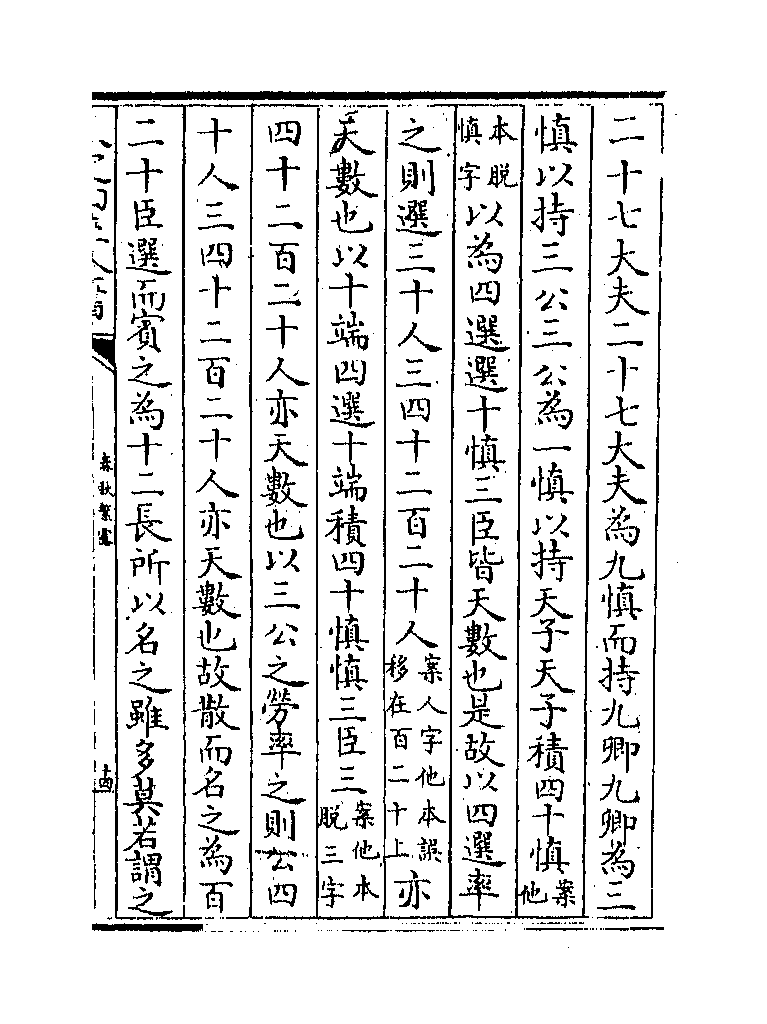 二十七大夫二十七大夫為九慎而持九卿九卿為三
慎以持三公三公為一慎以持天子天子積四十慎案他
本脱慎字以為四選選十慎三臣皆天數也是故以四選率
之則選三十人三四十二百二十人案人字他本誤移在百二十上亦
天數也以十端四選十端積四十慎慎三臣三案他本脱三字
四十二百二十人亦天數也以三公之勞率之則公四
十人三四十二百二十人亦天數也故散而名之為百
二十臣選而賓之為十二長所以名之雖多莫若謂之
春秋繁露
十四